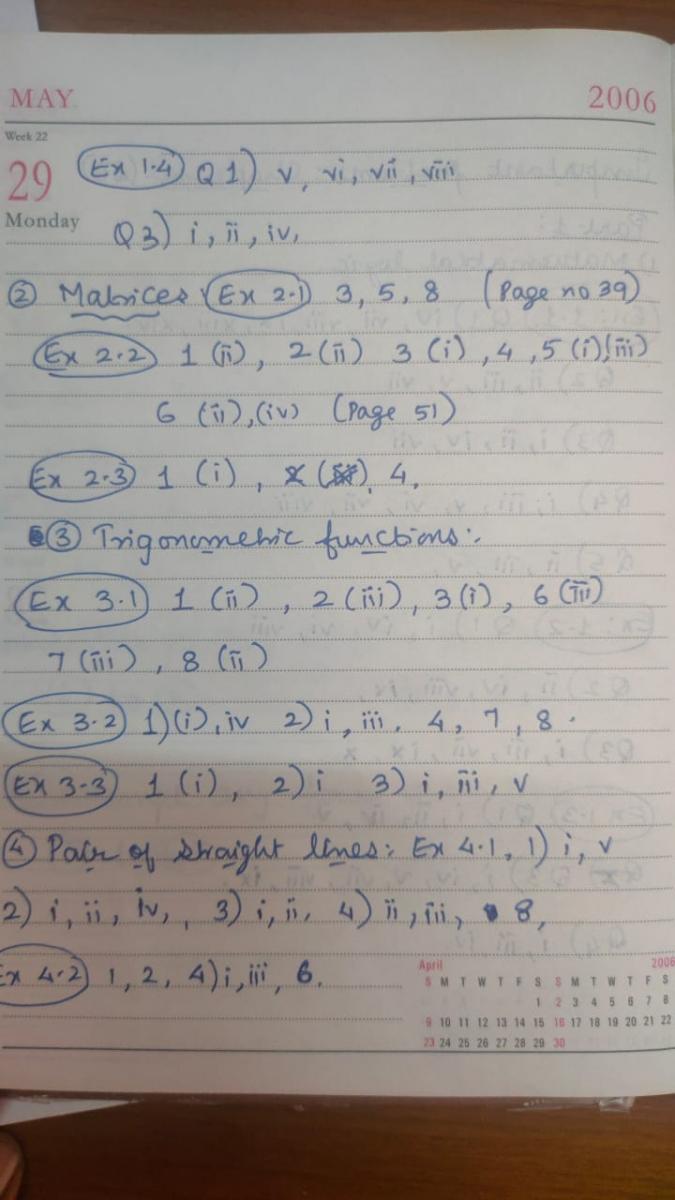 MAY 2006
Week 22
29
Monday
Ex 1.4 Q 1) v, vi, vii, viii
Q 3) i, ii, iv,
② Matrices: Ex 2.1 3, 5, 8 (Page no 39)
Ex 2.2 1 (ii), 2 (ii) 3 (i), 4, 5 (i), (iii)
6 (ii), (iv) (Page 51)
Ex 2.3 1 (i), 4,
③ Trigonometric functions:
Ex 3.1 1 (ii), 2 (iii), 3 (i), 6 (iii)
7 (iii), 8 (ii)
Ex 3.2 1) (i), iv 2) i, iii, 4, 7, 8.
Ex 3.3 1 (i), 2) i 3) i, iii, v
④ Pair of straight lines: Ex 4.1, 1) i, v
2) i, ii, iv, 3) i, ii, 4) ii, iii, 8,
Ex 4.2 1, 2, 4) i, iii, 6.
April 2006
S M T W T F S S M T W T F S
1 2 3 4 5 6 7 8
9 10 11 12 13 14 15 16 17 18 19 20 21 22
23 24 25 26 27 28 29 30